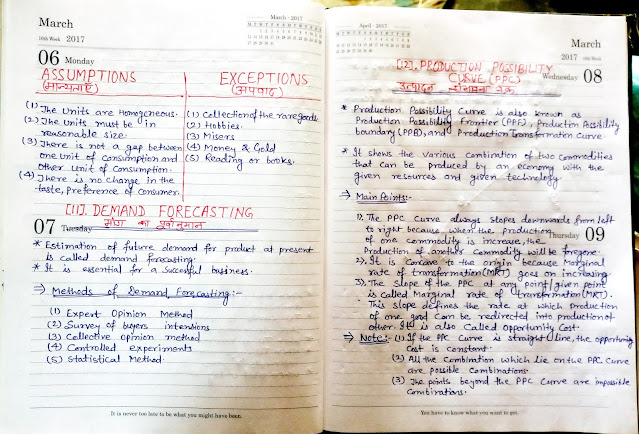 March
March - 2017
10th Week 2017
06 Monday
ASSUMPTIONS
(मान्यताएँ)
(1) The Units are Homogeneous.
(2) The Units must be in
reasonable size.
(3) There is not a gap between
one unit of consumption and
Other Unit of Consumption.
(4) There is no change in the
taste, Preference of consumer.
EXCEPTIONS
(अपवाद)
(1) Collection of the rare goods
(2) Hobbies.
(3) Misers
(4) Money & Gold
(5) Reading or books.
[11]. DEMAND FORECASTING
मांग का पूर्वानुमान
07 Tuesday
* Estimation of future demand for product at present
is called demand forecasting.
* It is essential for a successful business.
⇒ Methods of Demand Forecasting:-
(1) Expert Opinion Method
(2) Survey of buyers intensions
(3) Collective opinion method
(4) Controlled experiments
(5) Statistical Method.
It is never too late to be what you might have been.
April - 2017
March
10th Week 2017
Wednesday 08
[12]. PRODUCTION POSSIBILITY
CURVE (PPC)
उत्पादन संभावना वक्र
* Production Possibility Curve is also known as
Production Possibility Frontier (PPF), Production Possibility
boundary (PPB), and Production Transformation Curve.
* It shows the various combination of two commodities
that can be produced by an economy with the
given resources and given technology.
⇒ Main Points:-
Thursday 09
1). The PPC Curve always slopes downwards from left
to right because when the production
of one commodity is increase, the
Production of another commodity will be foregone.
2). It is Concave to the origin because Marginal
rate of transformation (MRT) goes on increasing.
3). The Slope of the PPC at any point/given point
is called Marginal rate of Transformation (MRT).
This slope defines the rate at which Production
of one good can be redirected into production of
other. It is also Called Opportunity Cost.
⇒ Note:- (1) If the PPC Curve is straight line, the opportunity
Cost is constant.
(2) All the Combination which lie on the PPC Curve
are possible Combinations.
(3) The points beyond the PPC Curve are impossible
Combinations.
You have to know what you want to get.